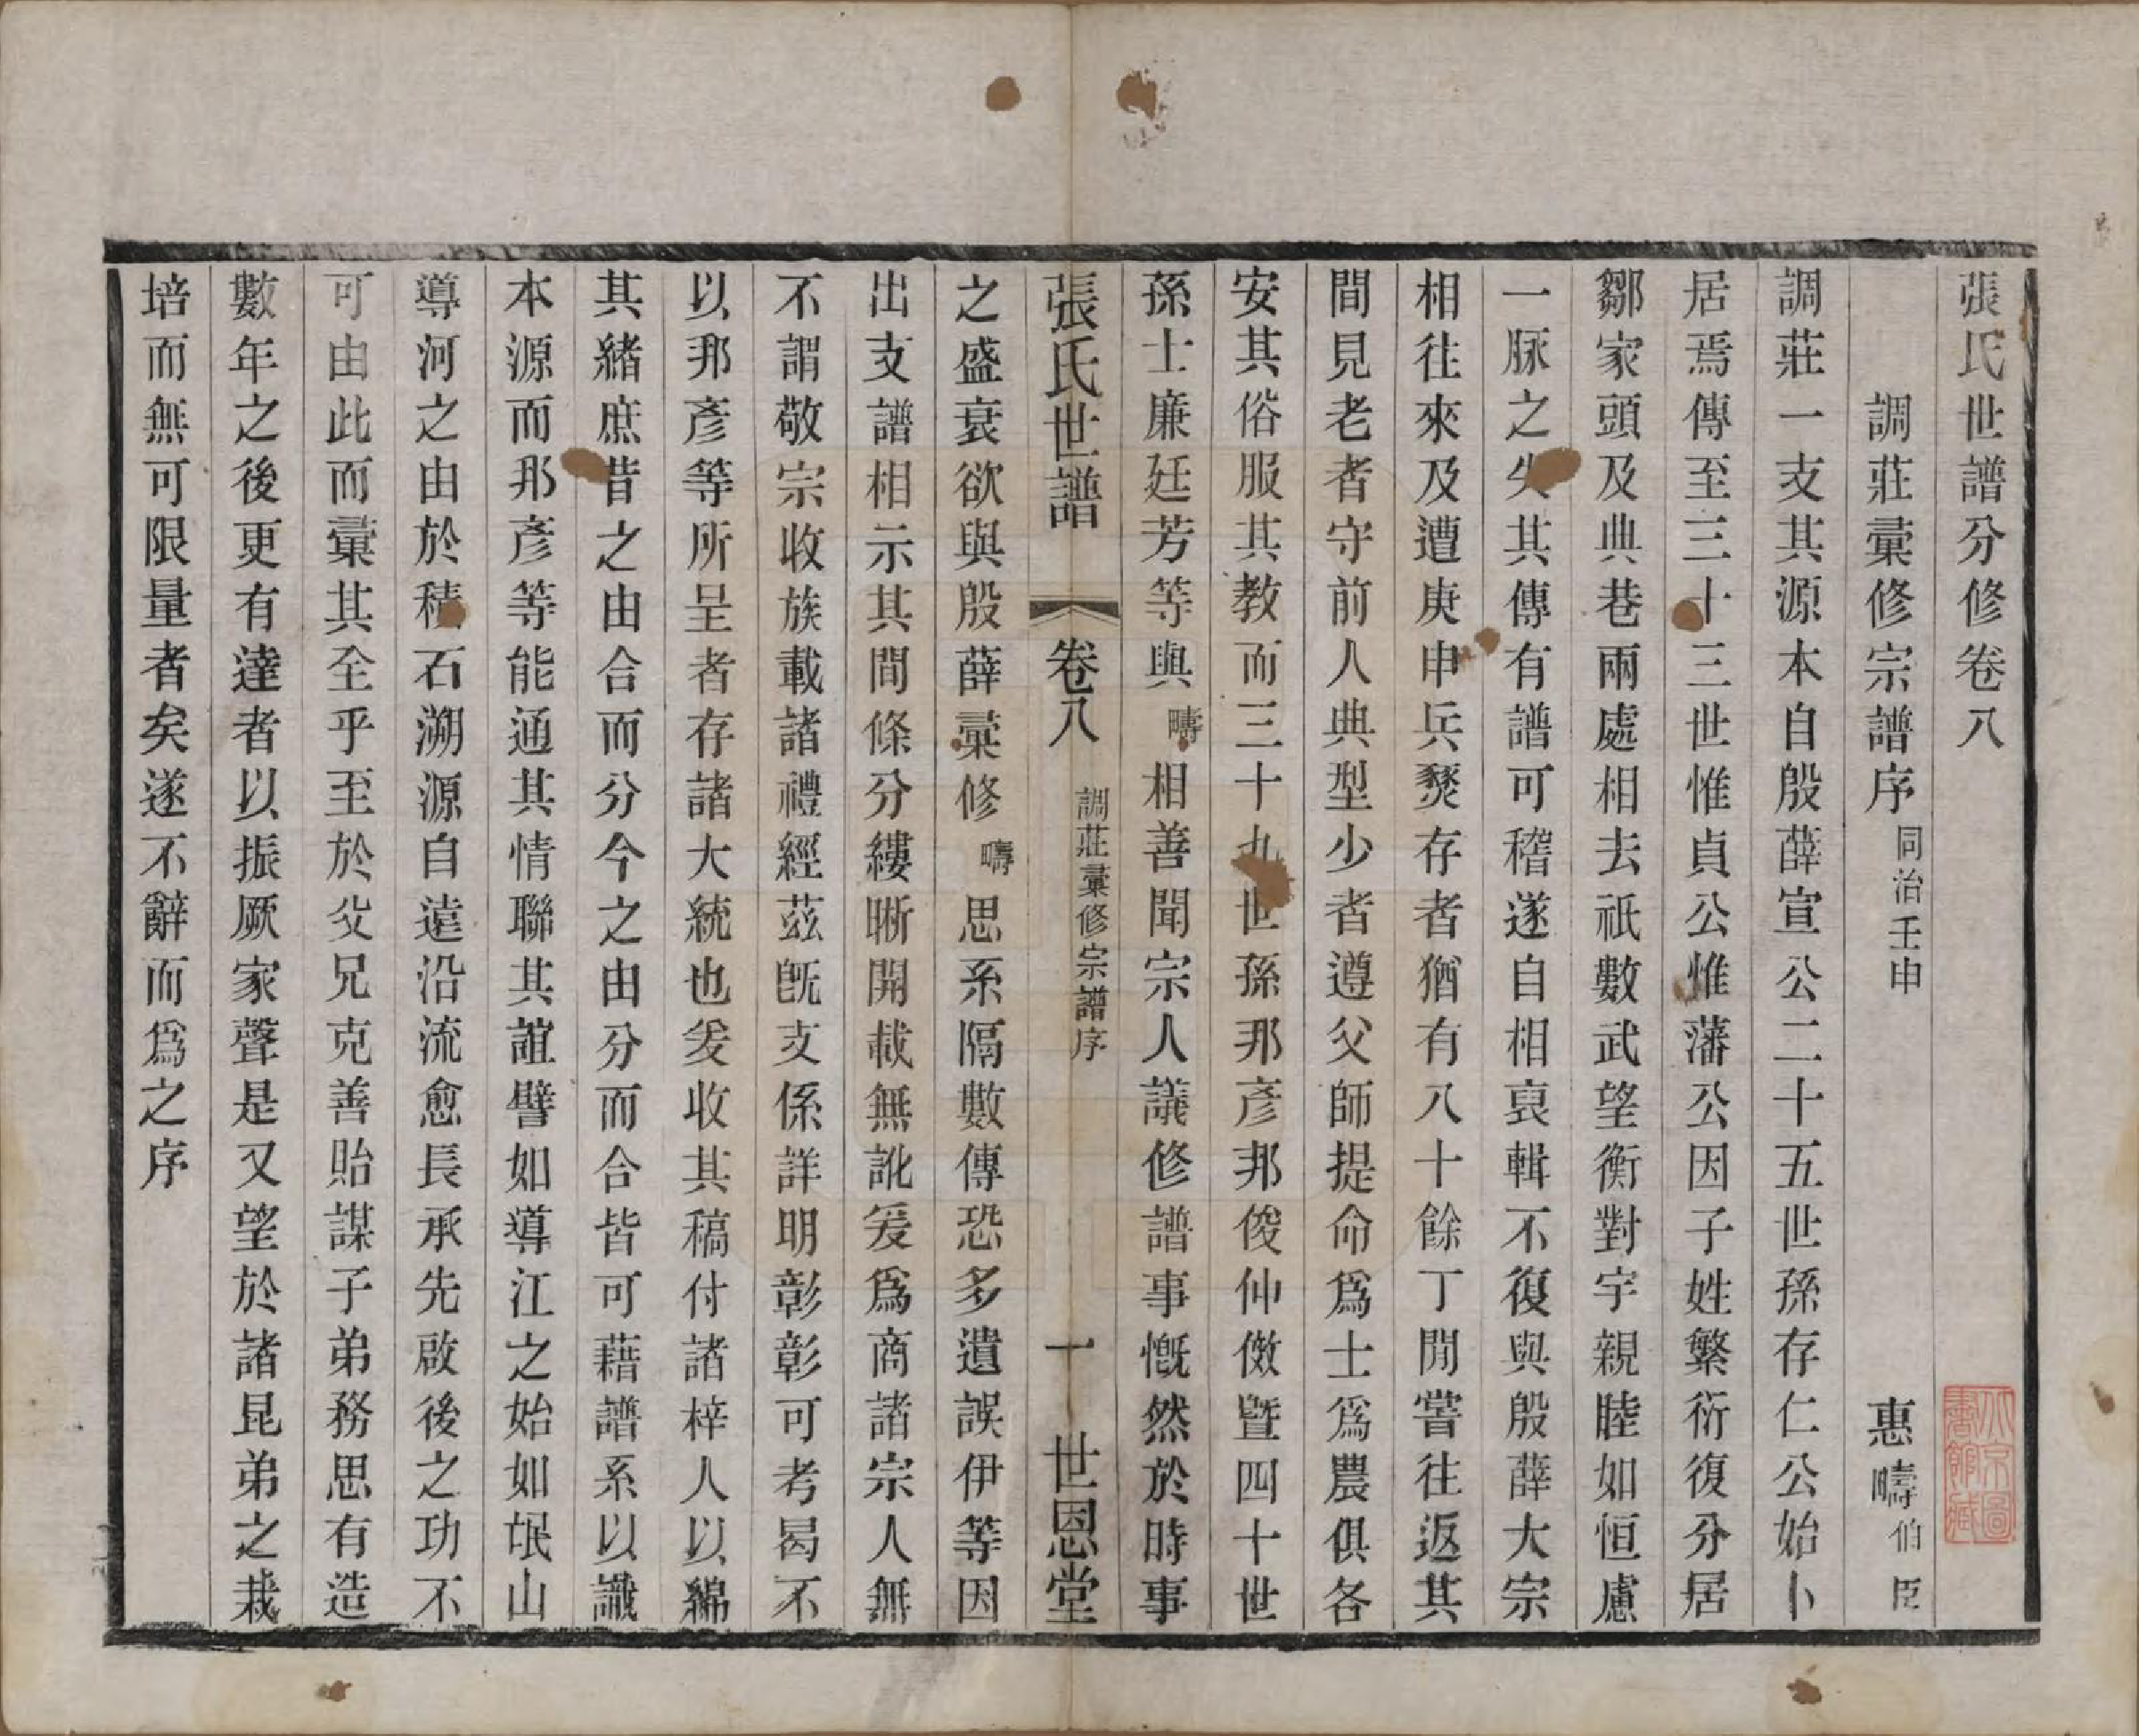 張氏世譜分修卷八
調莊彙修宗譜序 同治壬申 惠疇 伯臣
調莊一支其源本自殷薛宣公二十五世孫存仁公始卜
居焉傳至三十三世惟貞公惟藩公因子姓繁衍復分居
鄒家頭及典巷兩處相去祇數武望衡對宇親睦如恒慮
一脉之失其傳有譜可稽遂自相裒輯不復與殷薛大宗
相往來及遭庚申兵燹存者猶有八十餘丁閒嘗往返其
間見老者守前人典型少者遵父師提命爲士爲農俱各
安其俗服其教而三十九世孫那彥邦俊仲僌暨四十世
孫士廉廷芳等與疇相善聞宗人議修譜事慨然於時事
張氏世譜 卷八 調莊彙修宗譜序 一 世恩堂
之盛衰欲與殷薛彙修疇思系隔數傳恐多遺誤伊等因
出支譜相示其間條分縷晰開載無訛爰爲商諸宗人無
不謂敬宗收族載諸禮經茲旣支係詳明彰彰可考曷不
以那彥等所呈者存諸大統也爰收其稿付諸梓人以綿
其緒庶昔之由合而分今之由分而合皆可藉譜系以識
本源而那彥等能通其情聯其誼譬如導江之始如岷山
導河之由於積石溯源自遠沿流愈長承先啟後之功不
可由此而彙其全乎至於父兄克善貽謀子弟務思有造
數年之後更有達者以振厥家聲是又望於諸昆弟之栽
培而無可限量者矣遂不辭而爲之序